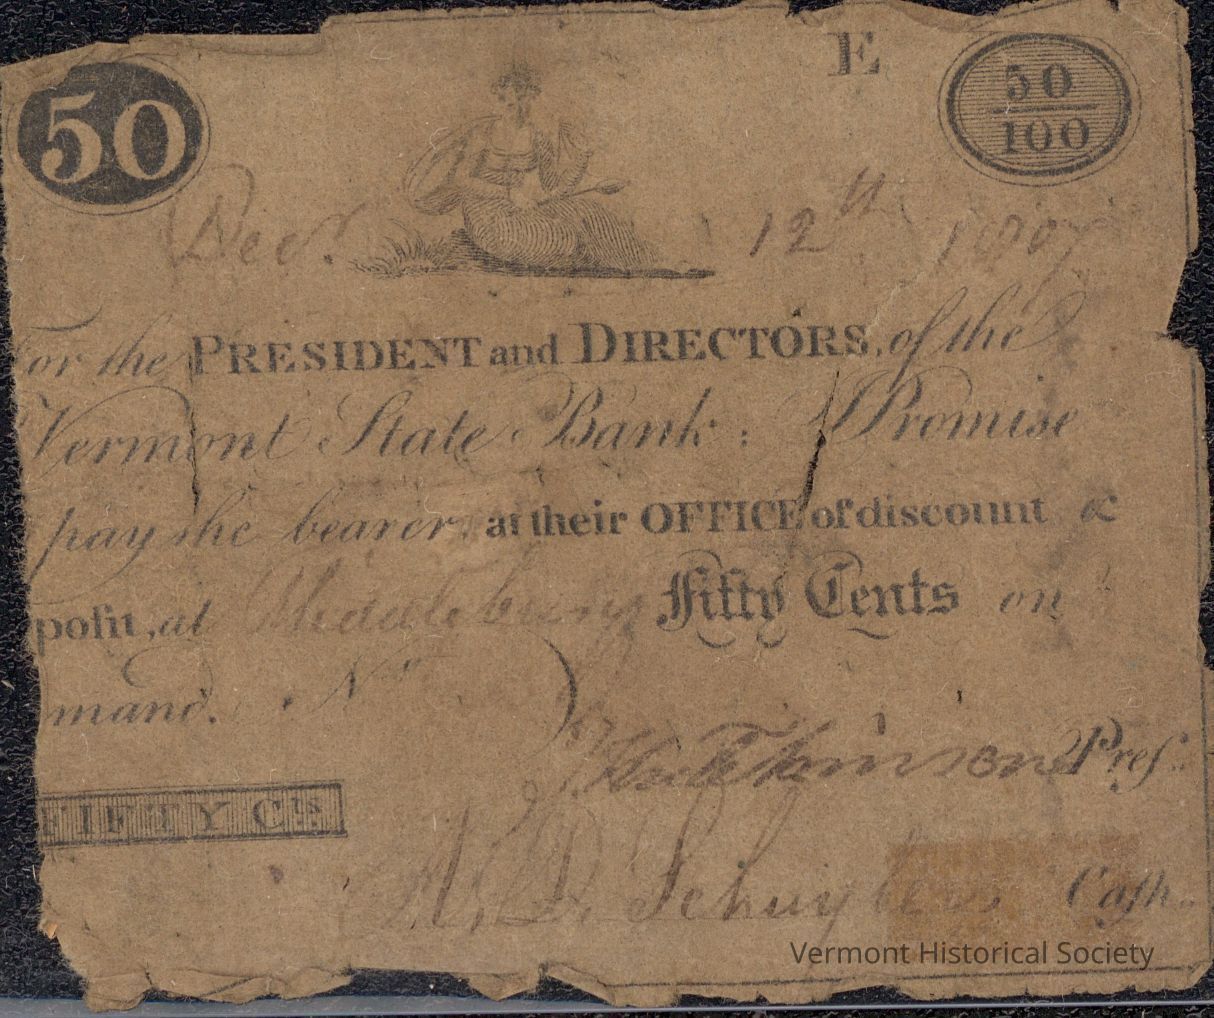 E
50
50
100
Dec.r 12th 1807
For the PRESIDENT and DIRECTORS, of the
Vermont State Bank: I Promise
pay the bearer at their OFFICE of discount &
posit, at Middlebury Fifty Cents on
mand. No
J. Hutchinson Pres.
FIFTY Cts.
A. D. Schuyler Cash.
Vermont Historical Society